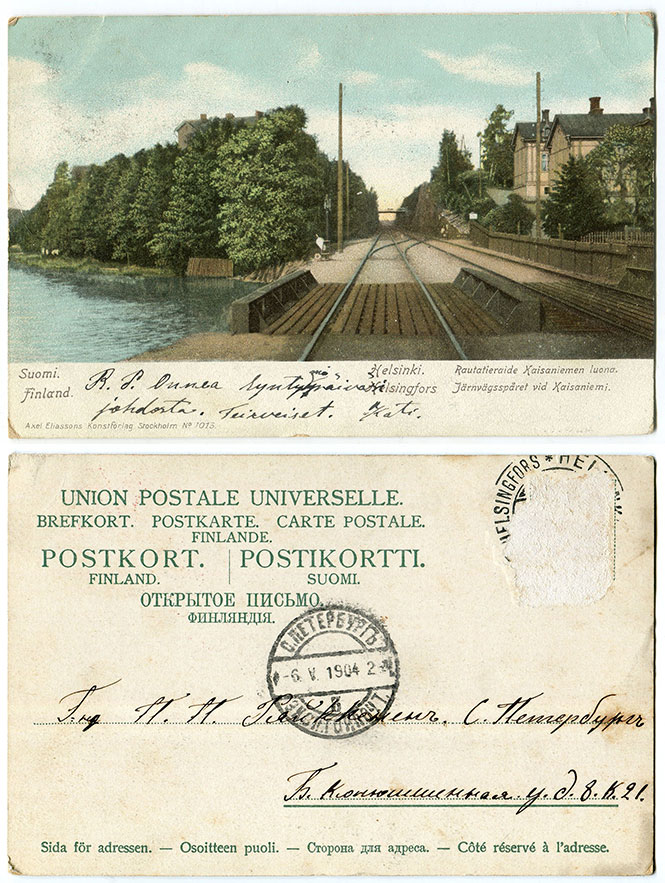 Suomi.
Finland.
Helsinki.
Helsingfors
Rautatieraide Kaisaniemen luona.
Järnvägsspåret vid Kaisaniemi.
R. P. Onnea Syntymäpäiväsi
johdosta. Terveiset. Kati.
Axel Eliassons Konstförlag Stockholm No 1013.
UNION POSTALE UNIVERSELLE.
BREFKORT. POSTKARTE. CARTE POSTALE.
FINLANDE.
POSTKORT. POSTIKORTTI.
FINLAND. SUOMI.
ОТКРЫТОЕ ПИСЬМО.
ФИНЛЯНДІЯ.
HELSINGFORS * HEL
С.ПЕТЕРБУРГЪ
6. V. 1904 2
Гну П. П. С. Петербургъ
Б. Конюшенная у. д. 8. К. 21.
Sida för adressen. — Osoitteen puoli. — Сторона для адреса. — Côté réservé à l'adresse.